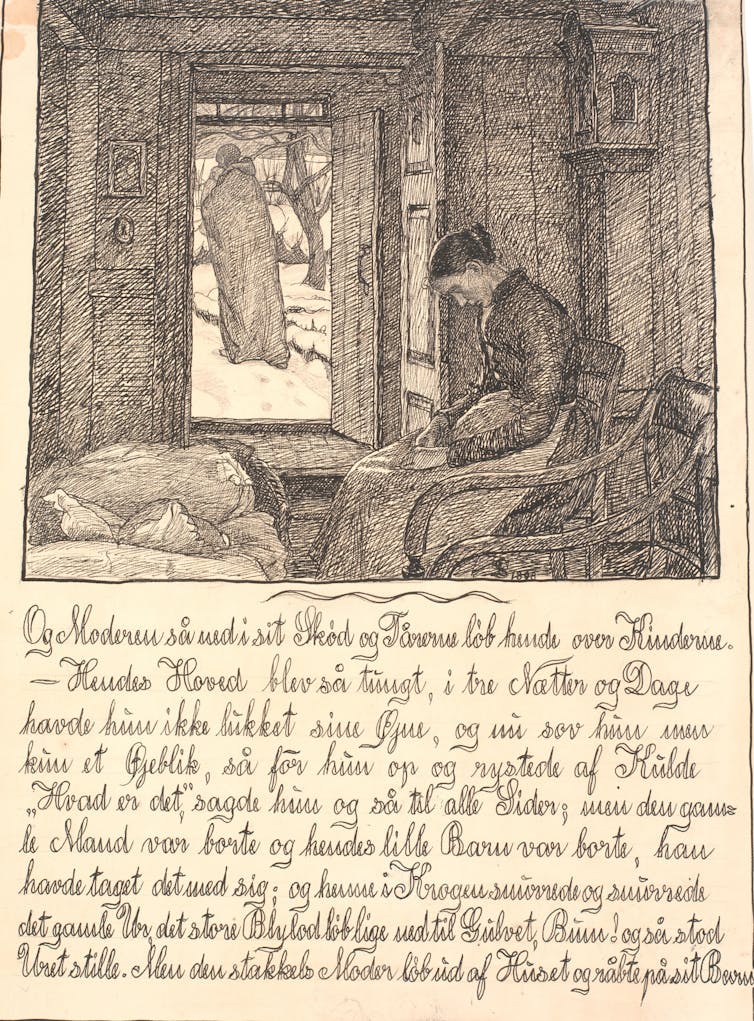 Og Moderen så ned i sit Skød og Tårerne løb hende over Kinderne.
— Hendes Hoved blev så tungt, i tre Nætter og Dage
havde hun ikke lukket sine Øjne, og nu sov hun men
kun et Øjeblik, så för hun op og rystede af Kulde
„Hvad er det," sagde hun og så til alle Sider; men den gam=
le Mand var borte og hendes lille Barn var borte, han
havde taget det med sig; og henne i Krogen snurrede og snurrede
det gamle Ur, det store Blylod løb lige ned til Gulvet, Bum! og så stod
Uret stille. Men den stakkels Moder løb ud af Huset og råbte på sit Barn